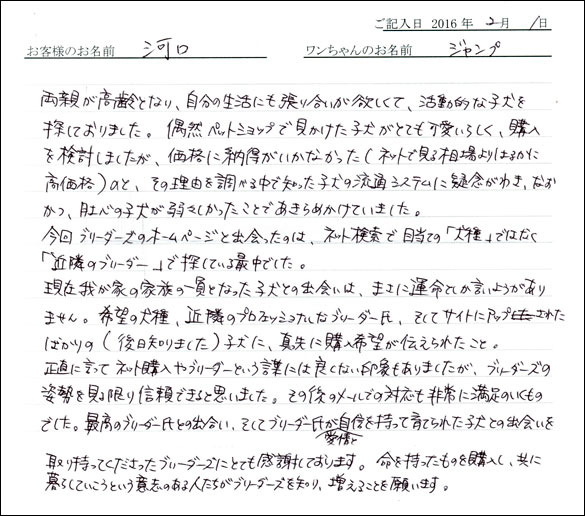 ご記入日 2016 年 2月 1日
お客様のお名前 河口 ワンちゃんのお名前 ジャンプ
両親が高齢となり、自分の生活にも張り合いが欲しくて、活動的な子犬を
探しておりました。偶然ペットショップで見かけた子犬がとても可愛いらしく、購入
を検討しましたが、価格に納得がいかなかった(ネットで見る相場よりはるかに
高価格)のと、その理由を調べる中で知った子犬の流通システムに疑念がわき、なお
かつ、肝心の子犬が弱々しかったことであきらめかけていました。
今回ブリーダーズのホームページと出会ったのは、ネット検索で目当ての「犬種」ではなく
「近隣のブリーダー」で探している最中でした。
現在我が家の家族の一員となった子犬との出会いは、まさに運命としか言いようがあり
ません。希望の犬種、近隣のプロフェッショナルなブリーダー氏、そしてサイトにアップされた
ばかりの(後日知りました)子犬に、真先に購入希望が伝えられたこと。
正直に言ってネット購入やブリーダーという業には良くない印象もありましたが、ブリーダーズの
姿勢を見る限り信頼できると思いました。その後のメールでの対応も非常に満足のいくもの
でした。最高のブリーダー氏との出会い、そしてブリーダー氏が自信を持って育てられた子犬との出会いを
愛情と
取り持ってくださったブリーダーズにとても感謝しております。命を持ったものを購入し、共に
暮らしていこうという意志のある人たちがブリーダーズを知り、増えることを願います。